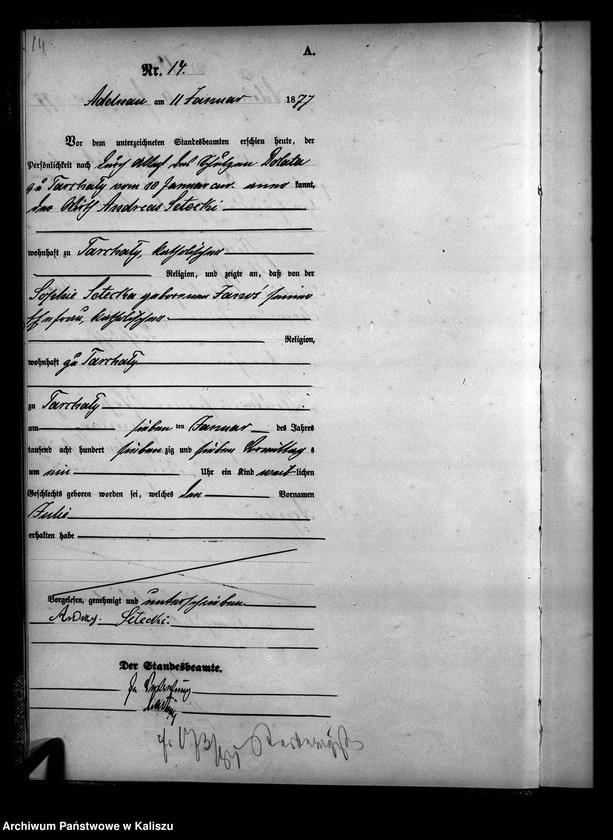 14.
A.
Nr. 14.
Adelnau am 11 Januar 1877
Vor dem unterzeichneten Standesbeamten erschien heute, der
Persönlichkeit nach durch Attest des Schulzen Dolata
zu Tarchaly vom 10 Januar anno kannt,
der Andreas Setecki
wohnhaft zu Tarchaly, katholischer
Religion, und zeigte an, daß von der
Sophie Setecka geborenen seiner
Ehefrau, katholischer
Religion,
wohnhaft zu Tarchaly
zu Tarchaly
am sieben ten Januar des Jahres
tausend acht hundert sieben zig und sieben Vormittag s
um ein Uhr ein Kind weib lichen
Geschlechts geboren worden sei, welches den Vornamen
Julie
erhalten habe
Vorgelesen, genehmigt und unterschrieben
Setecki.
Der Standesbeamte.
In Vertretung
Archiwum Państwowe w Kaliszu